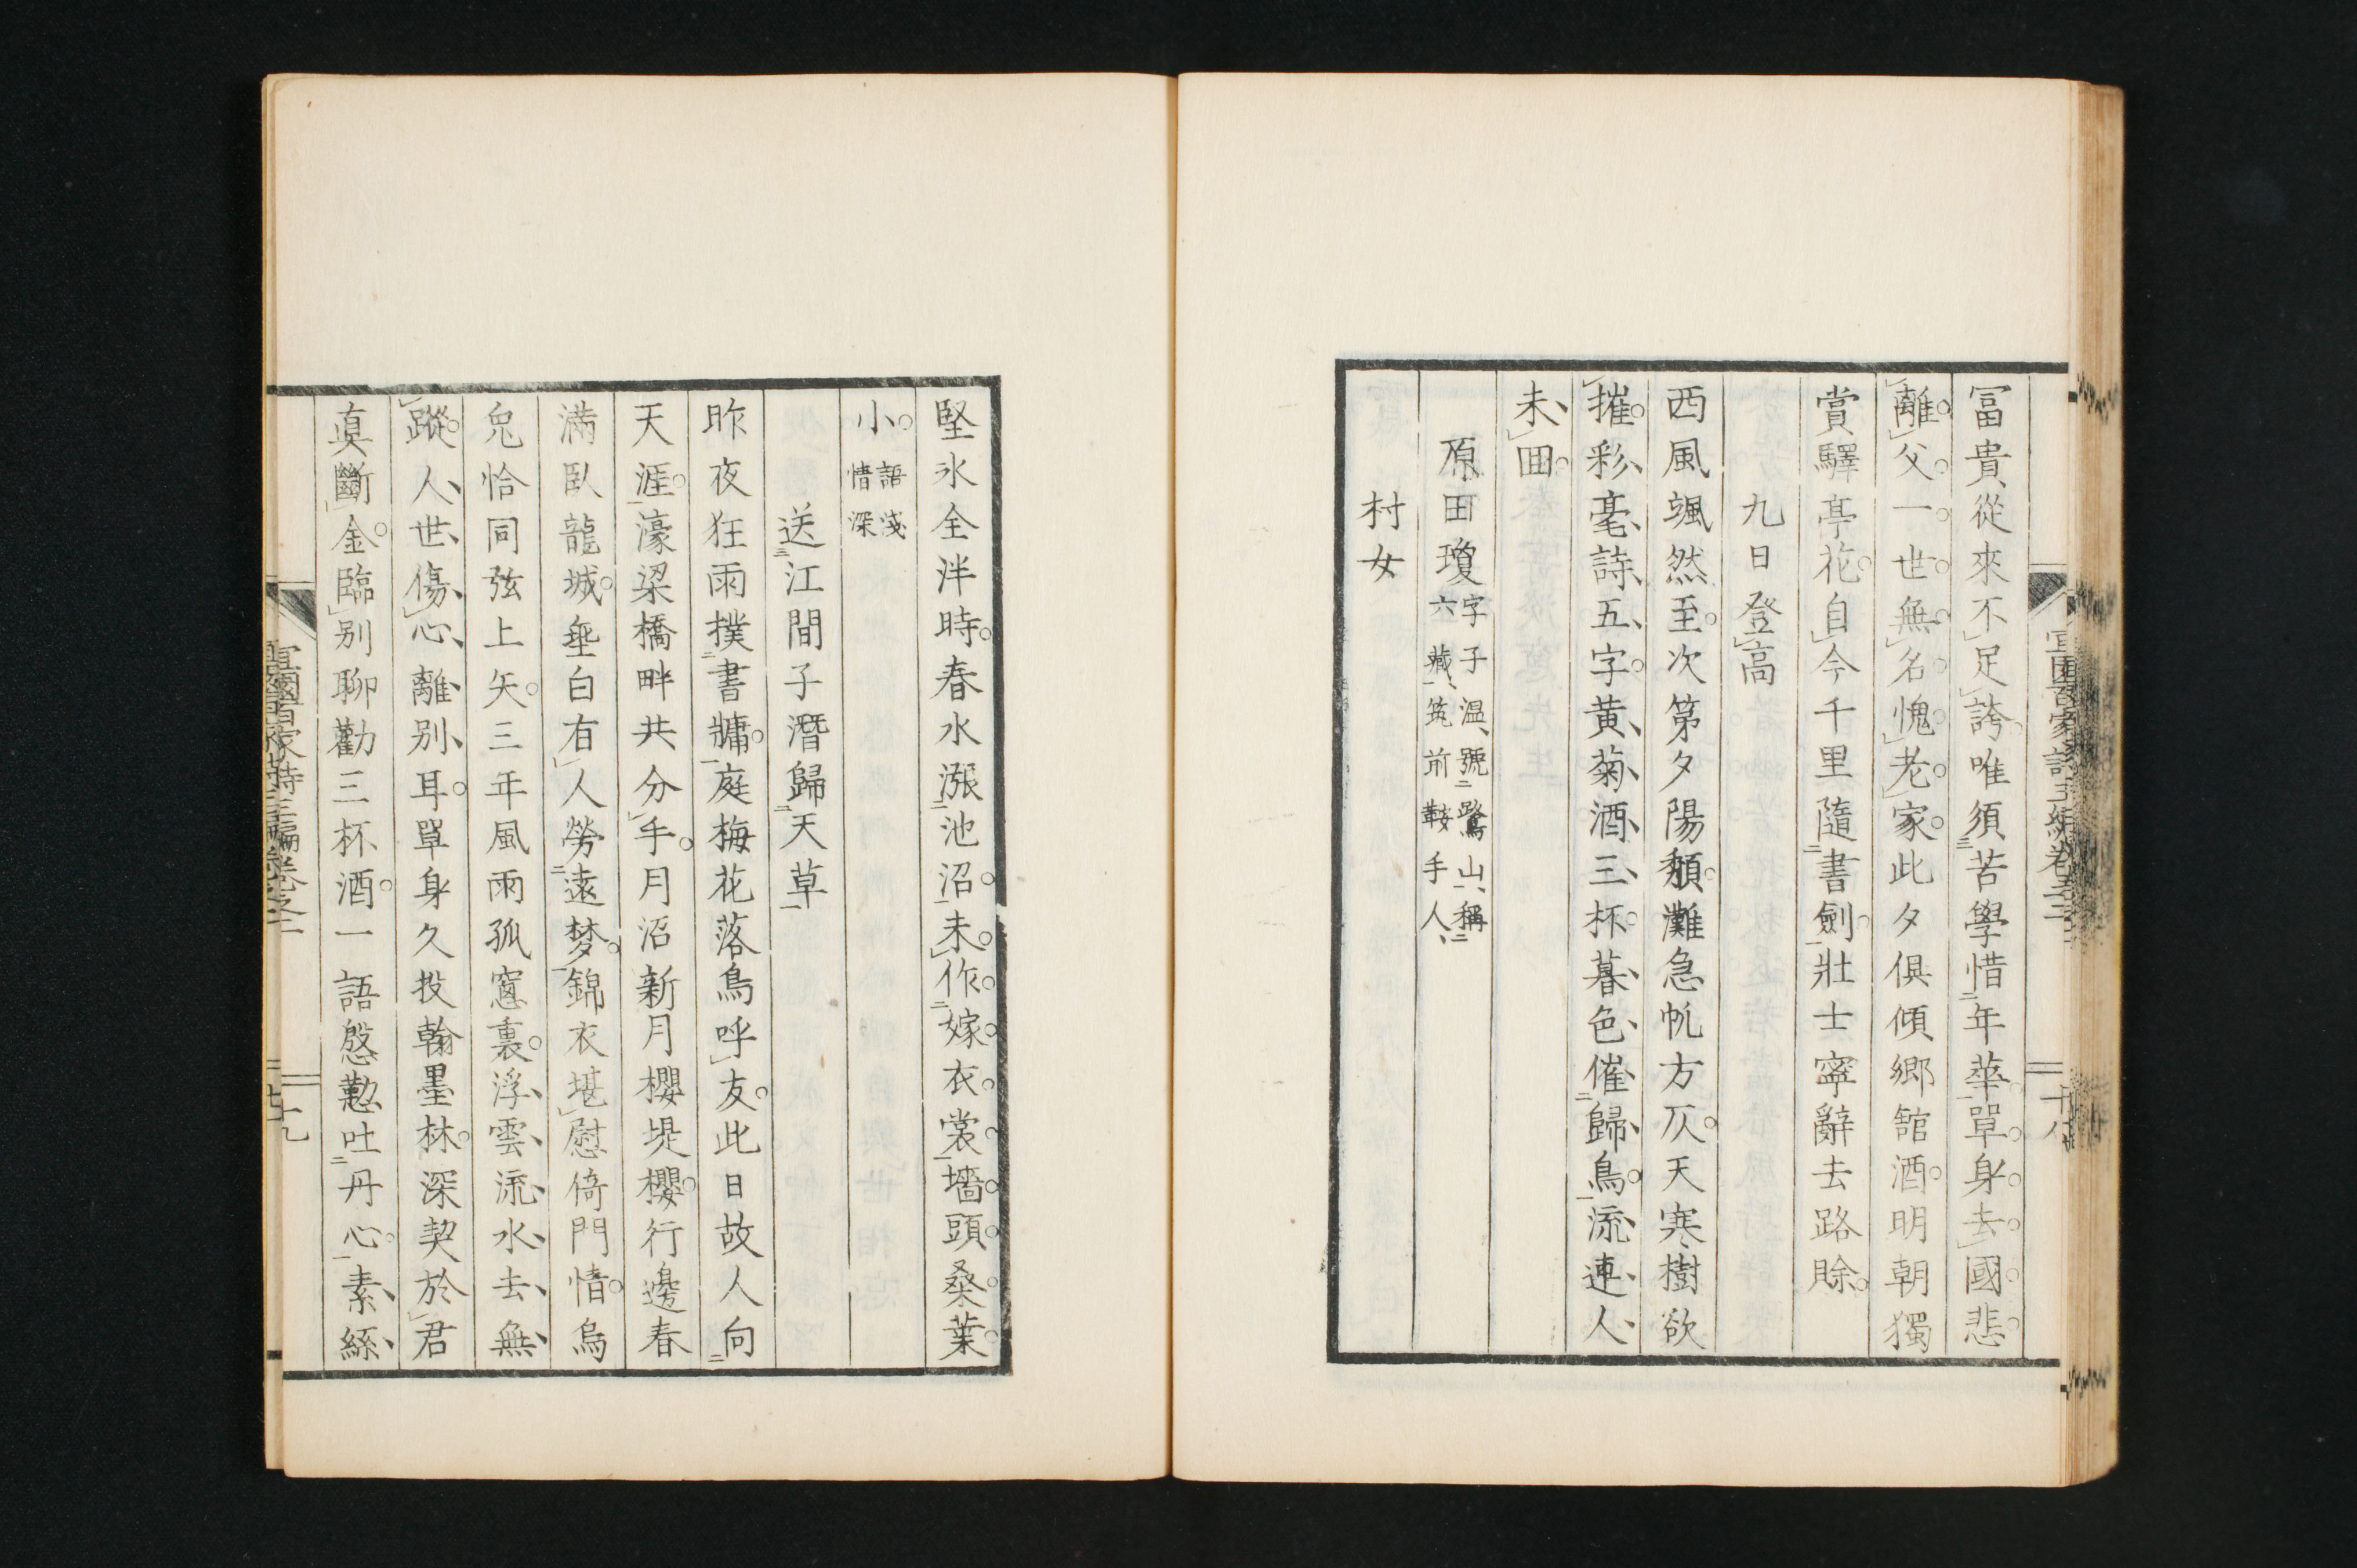 冨貴從來不足誇唯須苦學惜年華單身去國悲
離父一世無名愧老家此夕俱傾鄉舘酒明朝獨
賞驛亭花自今千里隨書劍壯士寧辭去路賖
九日登高
西風颯然至次第夕陽頽灘急帆方仄天寒樹欲
摧彩毫詩五字黄菊酒三杯暮色催歸鳥流連人
未回
原田瓊 字子温號鷺山稱六藏筑前鞍手人
村女
堅氷全泮時春水漲池沼未作嫁衣裳墻頭桑葉
小 語淺情深
送江間子潛歸天草
昨夜狂雨撲書牗庭梅花落鳥呼友此日故人向
天涯濠梁橋畔共分手月沼新月櫻堤櫻行邊春
満臥龍城垂白有人勞遠梦錦衣堪慰倚門情烏
兔恰同弦上矢三年風雨孤窻裏浮雲流水去無
蹤人世傷心離别耳單身久投翰墨林深契於君
眞斷金臨别聊勸三杯酒一語慇懃吐丹心素絲
宜園百家詩三編卷之二
十九